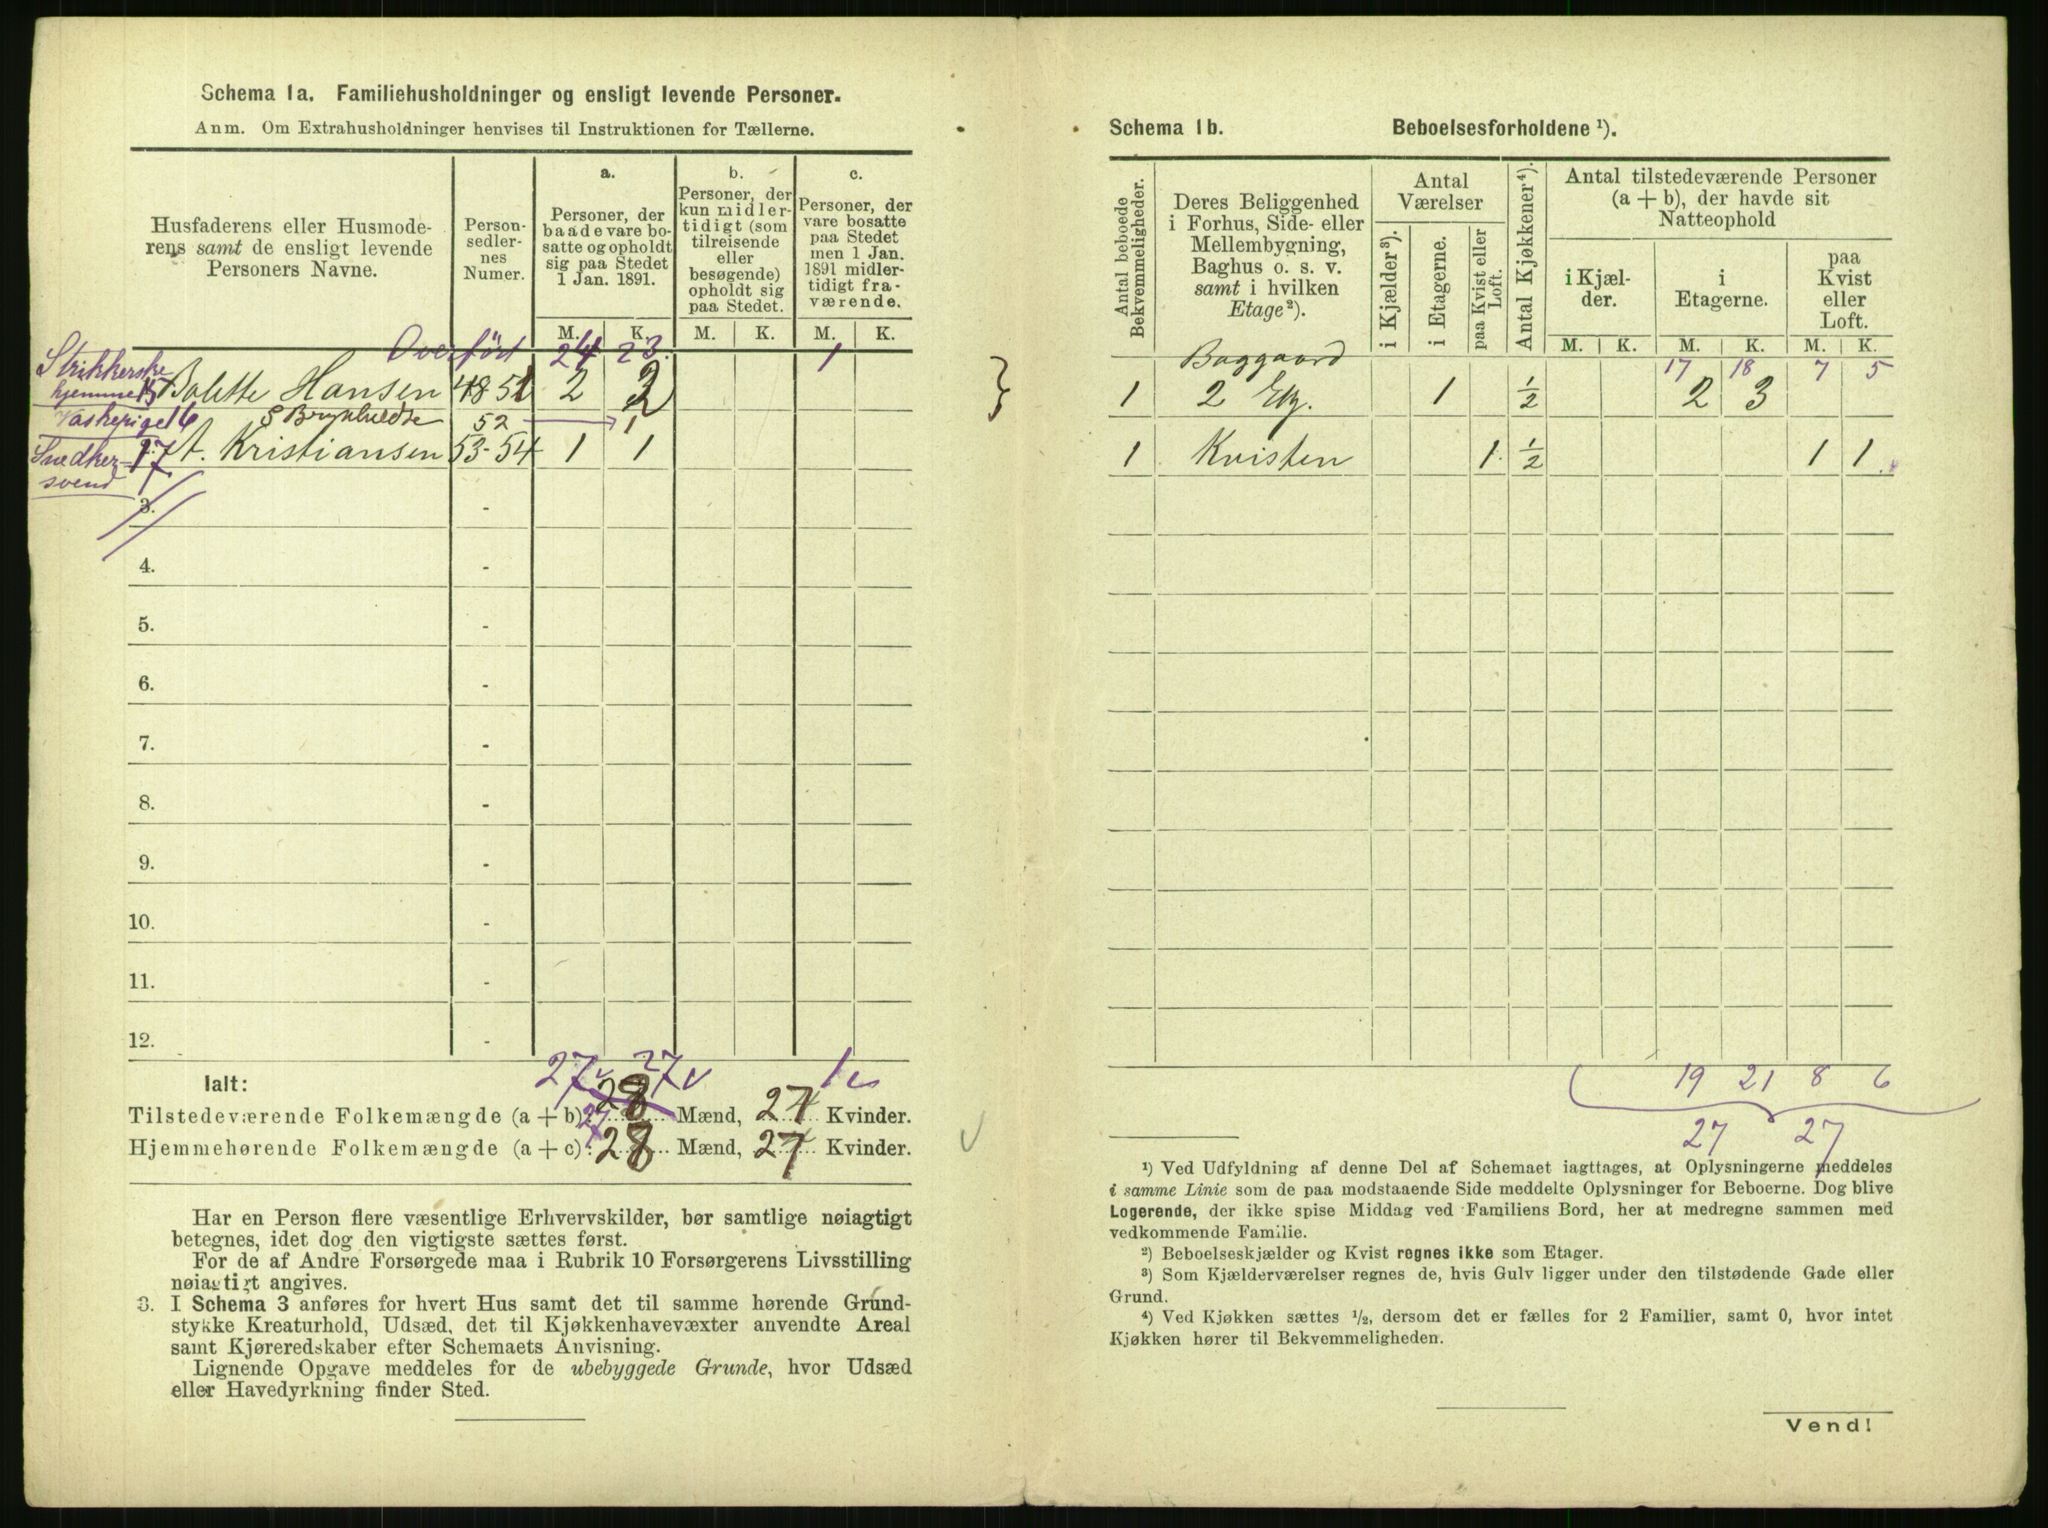 Schema 1a. Familiehusholdninger og ensligt levende Personer.
Anm. Om Extrahusholdninger henvises til Instruktionen for Tællerne.
Husfaderens eller Husmode-
rens samt de ensligt levende
Personers Navne.
Person-
sedler-
nes
Numer.
a.
Personer, der
baade vare bo-
satte og opholdt
sig paa Stedet
1 Jan. 1891.
b.
Personer, der
kun midler-
tidigt (som
tilreisende
eller
besøgende)
opholdt sig
paa Stedet.
c.
Personer, der
vare bosatte
paa Stedet
men 1 Jan.
1891 midler-
tidigt fra-
værende.
M. K. M. K. M. K.
Overført 24 23. 1
Strikkerske
hjemme 15 Bolette Hansen 48 51 2 2
Vaskepige 16 S Brynhildte 52 1
Snedker- 17 A. Kristiansen 53-54 1 1
svend
3. -
4. -
5. -
6. -
7. -
8. -
9. -
10. -
11. -
12. -
27 v 27 v 1 v
Ialt:
Tilstedeværende Folkemængde (a + b): 27 28 Mænd, 27 Kvinder.
Hjemmehørende Folkemængde (a + c): 28 Mænd, 27 Kvinder.
Har en Person flere væsentlige Erhvervskilder, bør samtlige nøiagtigt
betegnes, idet dog den vigtigste sættes først.
For de af Andre Forsørgede maa i Rubrik 10 Forsørgerens Livsstilling
nøiagtigt angives.
3. I Schema 3 anføres for hvert Hus samt det til samme hørende Grund-
stykke Kreaturhold, Udsæd, det til Kjøkkenhavevæxter anvendte Areal
samt Kjøreredskaber efter Schemaets Anvisning.
Lignende Opgave meddeles for de ubebyggede Grunde, hvor Udsæd
eller Havedyrkning finder Sted.
Schema 1b. Beboelsesforholdene ¹).
Antal beboede
Bekvemmeligheder.
Deres Beliggenhed
i Forhus, Side- eller
Mellembygning,
Baghus o. s. v.
samt i hvilken
Etage²).
Antal
Værelser
i Kjælder³).
i Etagerne.
paa Kvist eller
Loft.
Antal Kjøkkener⁴).
Antal tilstedeværende Personer
(a + b), der havde sit
Natteophold
i Kjæl-
der.
i
Etagerne.
paa
Kvist
eller
Loft.
M. K. M. K. M. K.
Baggaard 17 18 7 5
1 2 Etg. 1 ½ 2 3
1 Kvisten 1. ½ 1 1
19 21 8 6
27 27
¹) Ved Udfyldning af denne Del af Schemaet iagttages, at Oplysningerne meddeles
i samme Linie som de paa modstaaende Side meddelte Oplysninger for Beboerne. Dog blive
Logerende, der ikke spise Middag ved Familiens Bord, her at medregne sammen med
vedkommende Familie.
²) Beboelseskjælder og Kvist regnes ikke som Etager.
³) Som Kjælderværelser regnes de, hvis Gulv ligger under den tilstødende Gade eller
Grund.
⁴) Ved Kjøkken sættes ½, dersom det er fælles for 2 Familier, samt 0, hvor intet
Kjøkken hører til Bekvemmeligheden.
Vend!